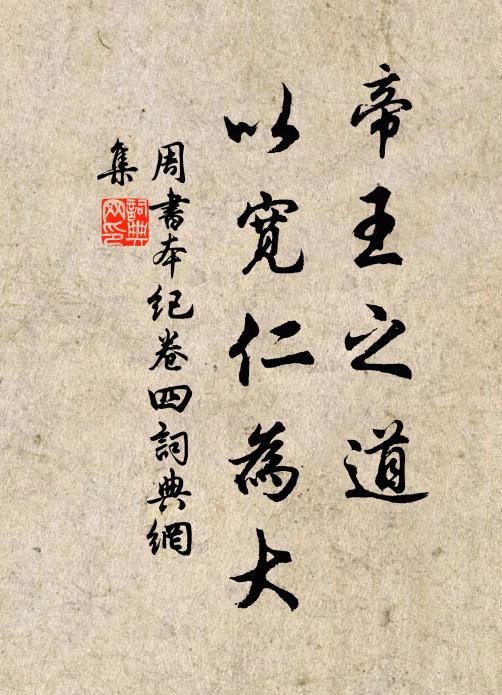 帝王之道
以寬仁為大
周書本紀卷四詞典網
集
詞典網印